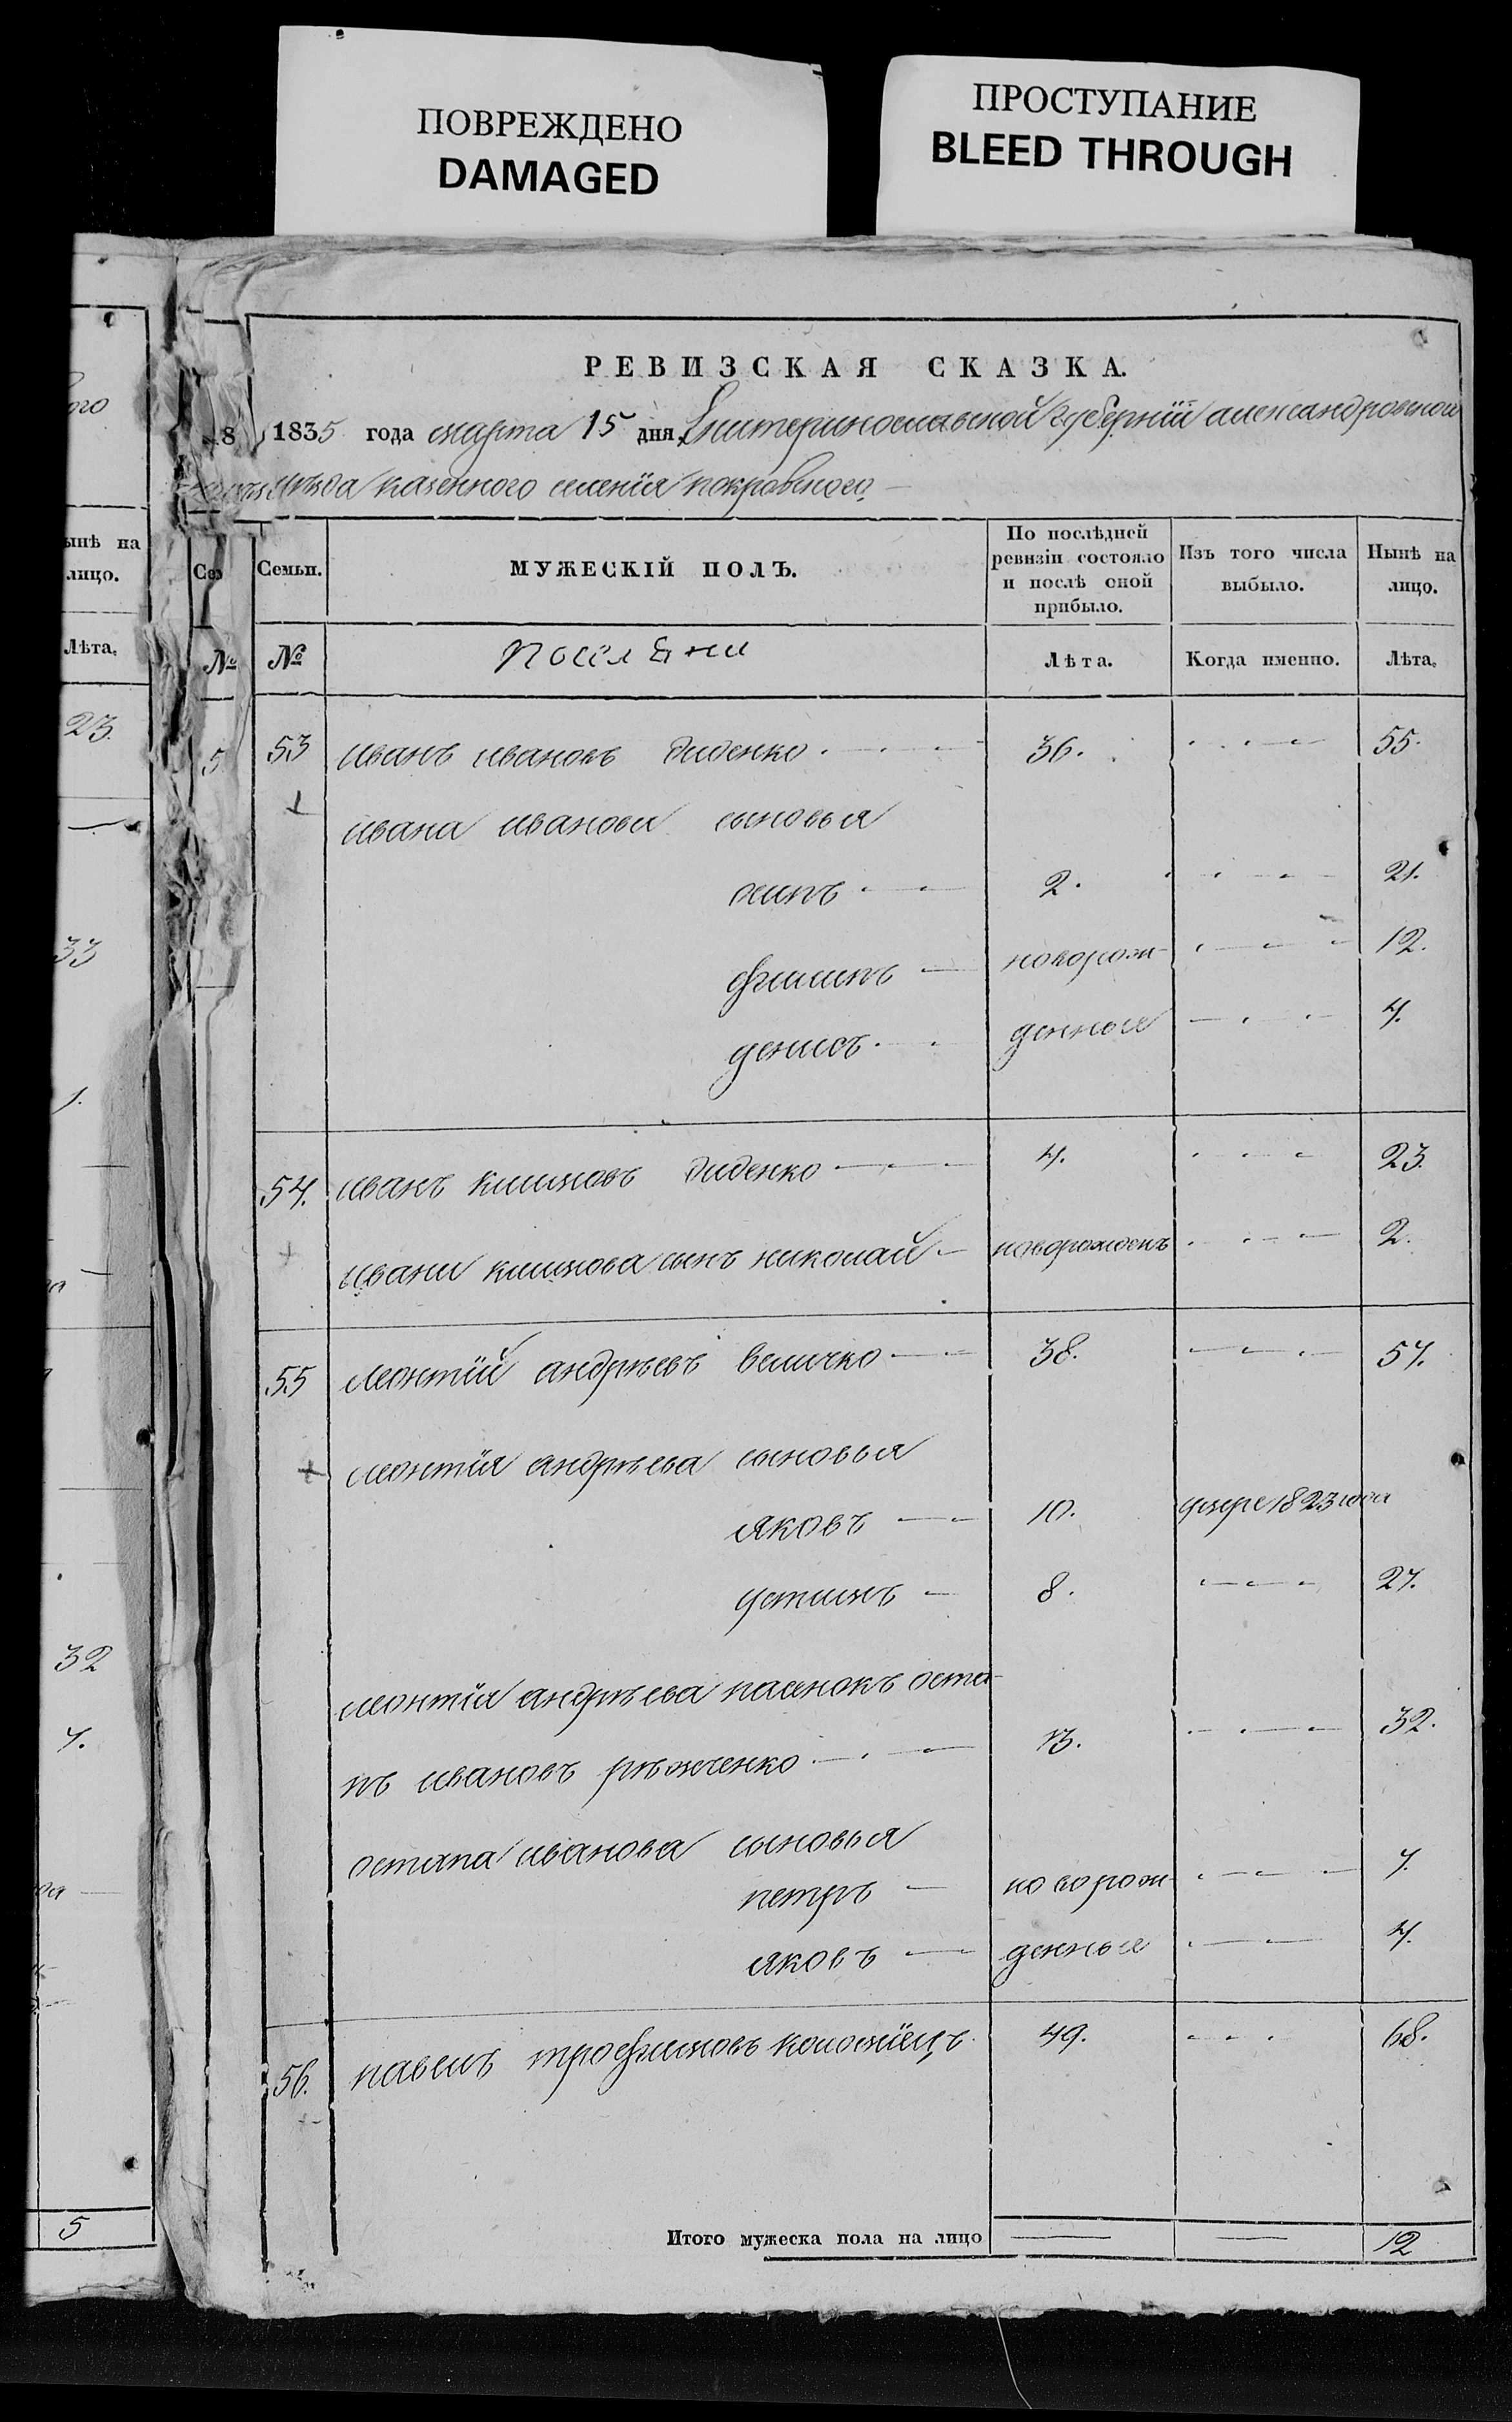 ПОВРЕЖДЕНО
DAMAGED
ПРОСТУПАНИЕ
BLEED THROUGH
РЕВИЗСКАЯ СКАЗКА.
1835 года марта 15 дня Екатеринославской губернїи александровскаго
уѣзда казенного селенїя покровского
Семьи. МУЖЕСКІЙ ПОЛЪ. По послѣдней ревизіи состояло и послѣ оной прибыло. Изъ того числа выбыло. Нынѣ на лицо.
№ поселяни Лѣта. Когда именно. Лѣта.
53 иванъ ивановъ диденко 36. 55.
ивана иванова сыновья
осипъ 2. 21.
филипъ новорож- 12.
денисъ денные 4.
54. иванъ климовъ диденко 4. 23.
ивана климова сынъ николай новорожденъ 2.
55 леонтїй андрѣевъ величко 38. 57.
леонтїя андрѣева сыновья
яковъ 10. умре 1823 года
устинъ 8. 27.
леонтїя андрѣева пасенокъ оста-
пъ ивановъ 13. 32.
остапа иванова сыновья
петръ новорож- 7.
яковъ денные 4.
56. павелъ трофимовъ коломїецъ 49. 68.
Итого мужеска пола на лицо 12
ого
ынѣ на
лицо.
Лѣта.
23.
33
1.
32
7.
5
8
Сем
№
5